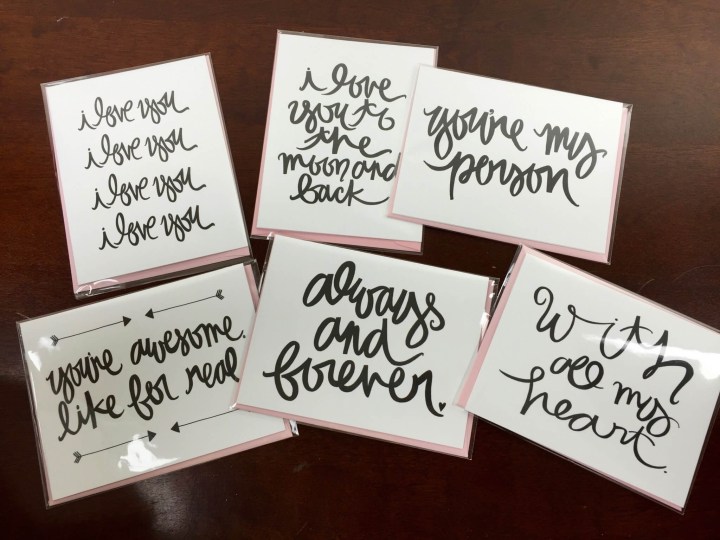 i love you
i love you
i love you
i love you
i love
you to
the
moon and
back
you're my
person
you're awesome.
like for real
always
and
forever.
With
all my
heart.